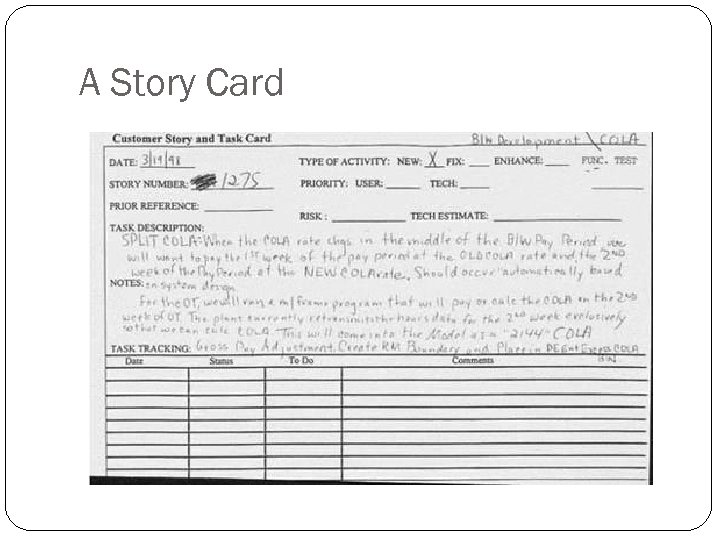 A Story Card
Customer Story and Task Card BIW Development \ COLA
DATE: 3/19/98 TYPE OF ACTIVITY: NEW: X FIX: ENHANCE: FUNC. TEST
STORY NUMBER: 1275 PRIORITY: USER: TECH:
PRIOR REFERENCE: RISK: TECH ESTIMATE:
TASK DESCRIPTION:
SPLIT COLA: When the COLA rate chgs in the middle of the BIW Pay Period, we
will want to pay the 1ST week of the pay period at the OLD COLA rate and the 2ND
week of the Pay Period at the NEW COLA rate. Should occur automatically based
NOTES: on system design
For the OT, we will run a m/frame program that will pay or calc the COLA on the 2ND
week of OT. The plant currently retransmits the hours data for the 2ND week exclusively
so that we can calc COLA. This will come into the Model as a "2144" COLA
TASK TRACKING: Gross Pay Adjustment. Create RM Boundary and Place in DEEnt Excess COLA
BIN
Date Status To Do Comments